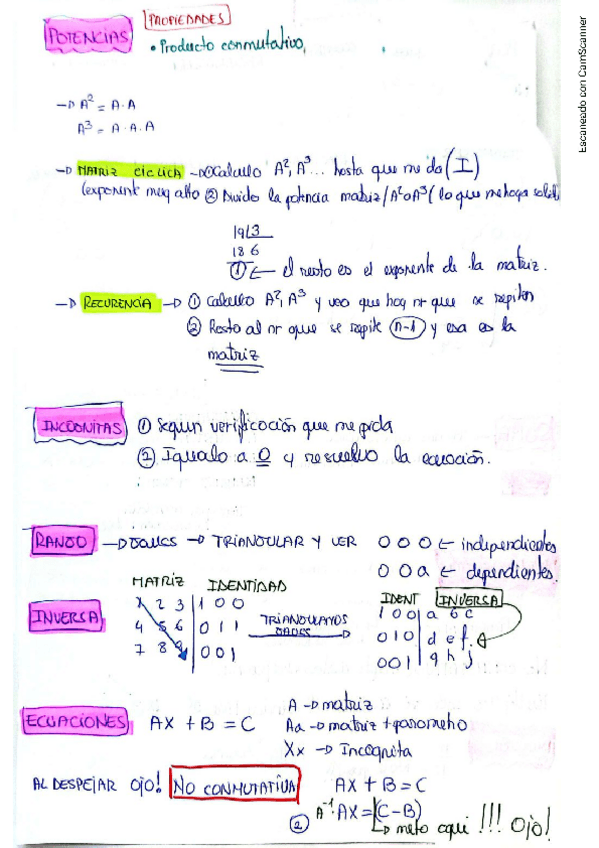 POTENCIAS
PROPIEDADES
• Producto conmutativo,
→ A² = A·A
A³ = A·A·A
→ MATRIZ CICLICA → ① Calculo A², A³... hasta que me da (I)
(exponente muy alto ② Divido la potencia matriz/A² o A³ (lo que me haga salid
19 ⌊3
18 6
① ← el resto es el exponente de la matriz.
→ RECURENCIA → ① Calculo A², A³ y veo que hay nr que se repiten
② Resto al nr que se repite (n-1) y esa es la
matriz
INCOGNITAS ① Segun verificación que me pida
② Igualo a 0 y resuelvo la ecuación.
RANGO → GAUSS → TRIANGULAR Y VER 0 0 0 ← independientes
0 0 a ← dependientes.
MATRIZ IDENTIDAD
IDENT INVERSA
INVERSA
1 2 3 | 1 0 0
4 5 6 | 0 1 1
7 8 9 | 0 0 1
TRIANGULAMOS
GAUSS
1 0 0 | a b c
0 1 0 | d e f
0 0 1 | g h j
ECUACIONES AX + B = C
A → matriz
Aa → matriz + parametro
Xx → Incognita
AL DESPEJAR OJO! NO CONMUTATIVA AX + B = C
② A⁻¹·AX = (C-B)
↳ meto aqui !!! OJO!
Escaneado con CamScanner